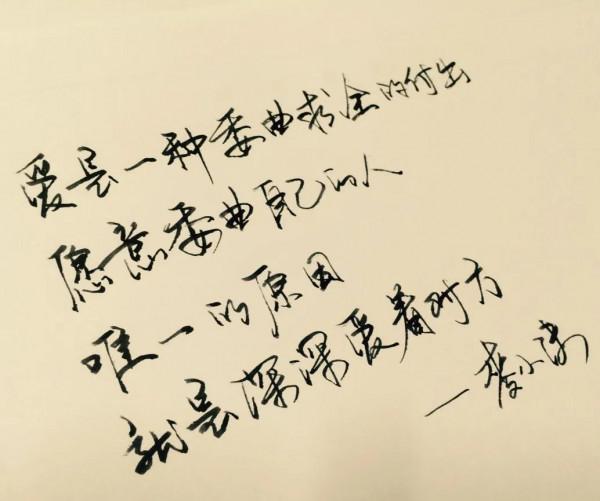 爱是一种委曲求全的付出
愿意委曲自己的人
唯一的原因
就是深深爱着对方